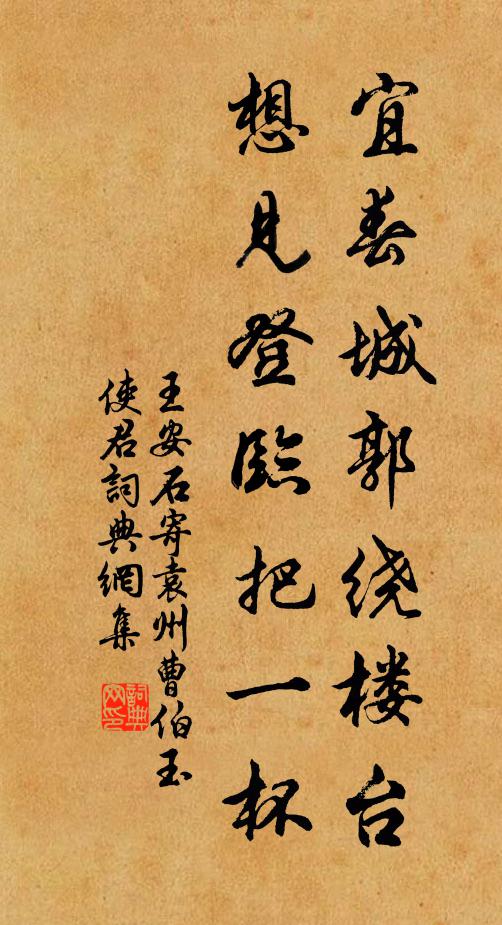 宜春城郭绕楼台
想见登臨把一杯
王安石寄袁州曹伯玉
使君詞典網集
詞典网印